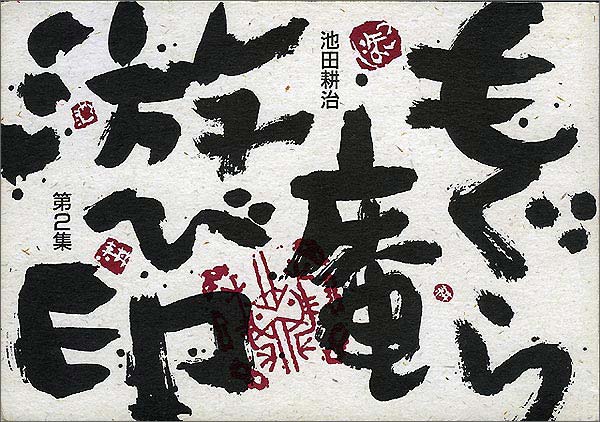 もぐら
庵
池田耕治
游び
印
第2集